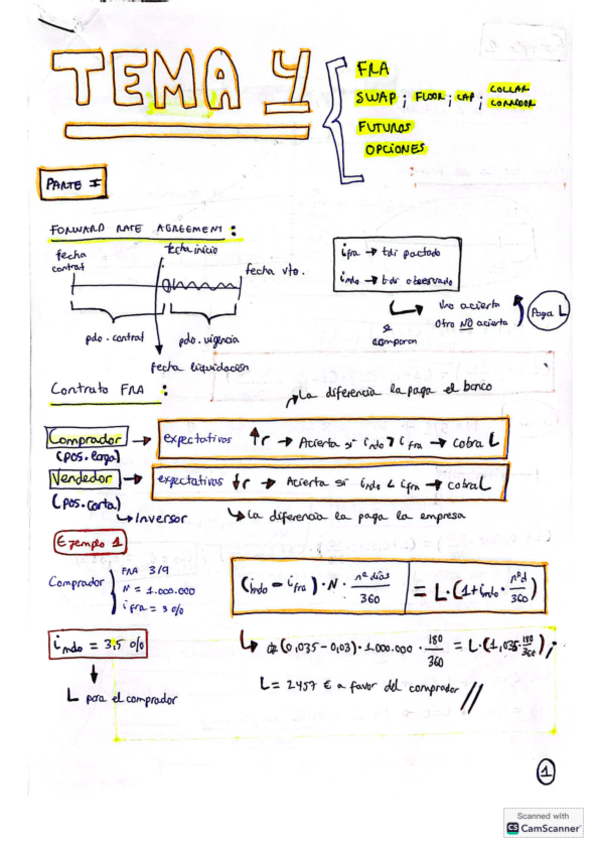 TEMA 4
FRA
SWAP ; FLOOR ; CAP ; COLLAR
CORREDOR
FUTUROS
OPCIONES
PARTE I
FORWARD RATE AGREEMENT :
fecha contrat
fecha inicio
fecha vto.
pdo. contrat
pdo. vigencia
fecha liquidación
i fra → tdi pactado
i mdo → tdi observado
se comparan
Uno acierta
Otro NO acierta
Paga L
Contrato FRA :
La diferencia la paga el banco
Comprador → expectativas ↑r → Acierta si i mdo > i fra → cobra L
(pos. larga)
Vendedor → expectativas ↓r → Acierta si i mdo < i fra → cobra L
(pos. corta)
↳ Inversor
↳ La diferencia la paga la empresa
Ejemplo 1
Comprador
FRA 3/9
N = 1.000.000
i fra = 3 %
(i mdo - i fra) · N · nº días / 360 = L · (1 + i mdo · nº d / 360)
i mdo = 3,5 %
L para el comprador
(0,035 - 0,03) · 1.000.000 · 180 / 360 = L · (1,035 · 180 / 360) ;
L = 2457 € a favor del comprador //
1
Scanned with
CS CamScanner